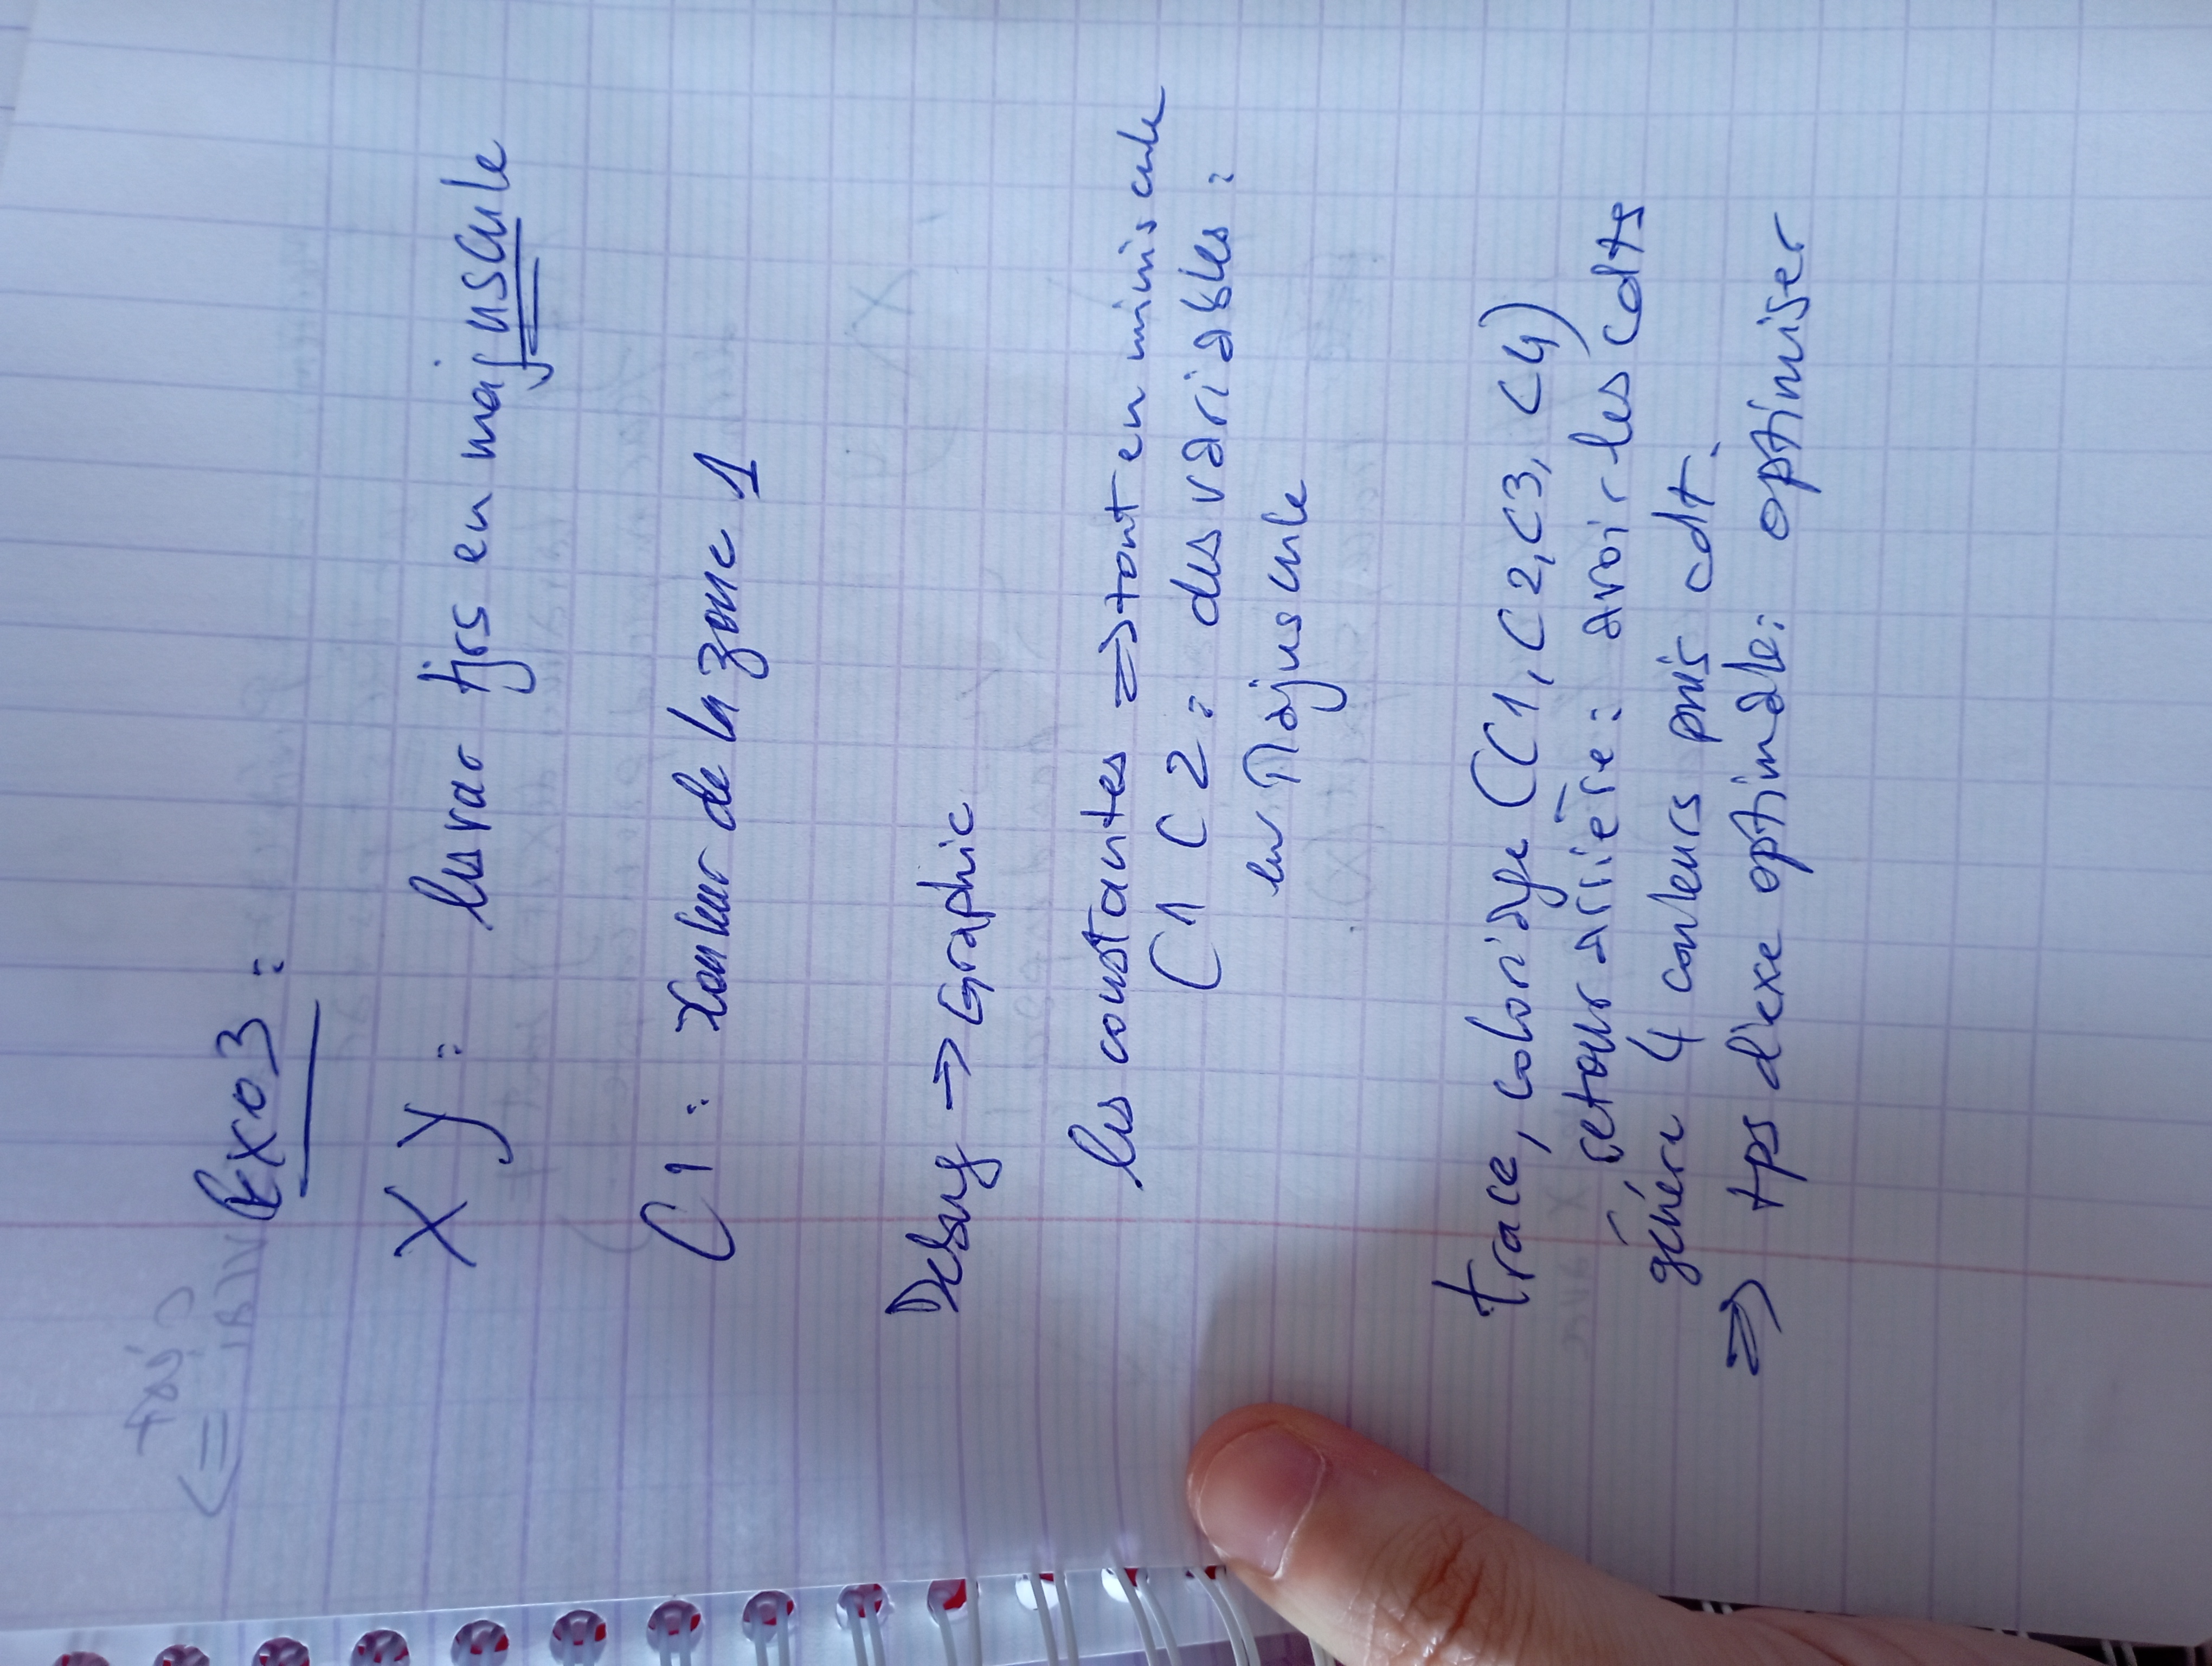 Exo3 :
X Y : les var tjrs en majuscule
C1 : couleur de la zone 1
Debug → Graphic
les constantes => tout en miniscule
C1 C2 : des variables :
en Majuscule
trace, coloriage (C1, C2, C3, C4)
retour arrière : avoir les cdts
génére 4 couleurs puis cdt.
=> tps d'exe optimale : optimiser